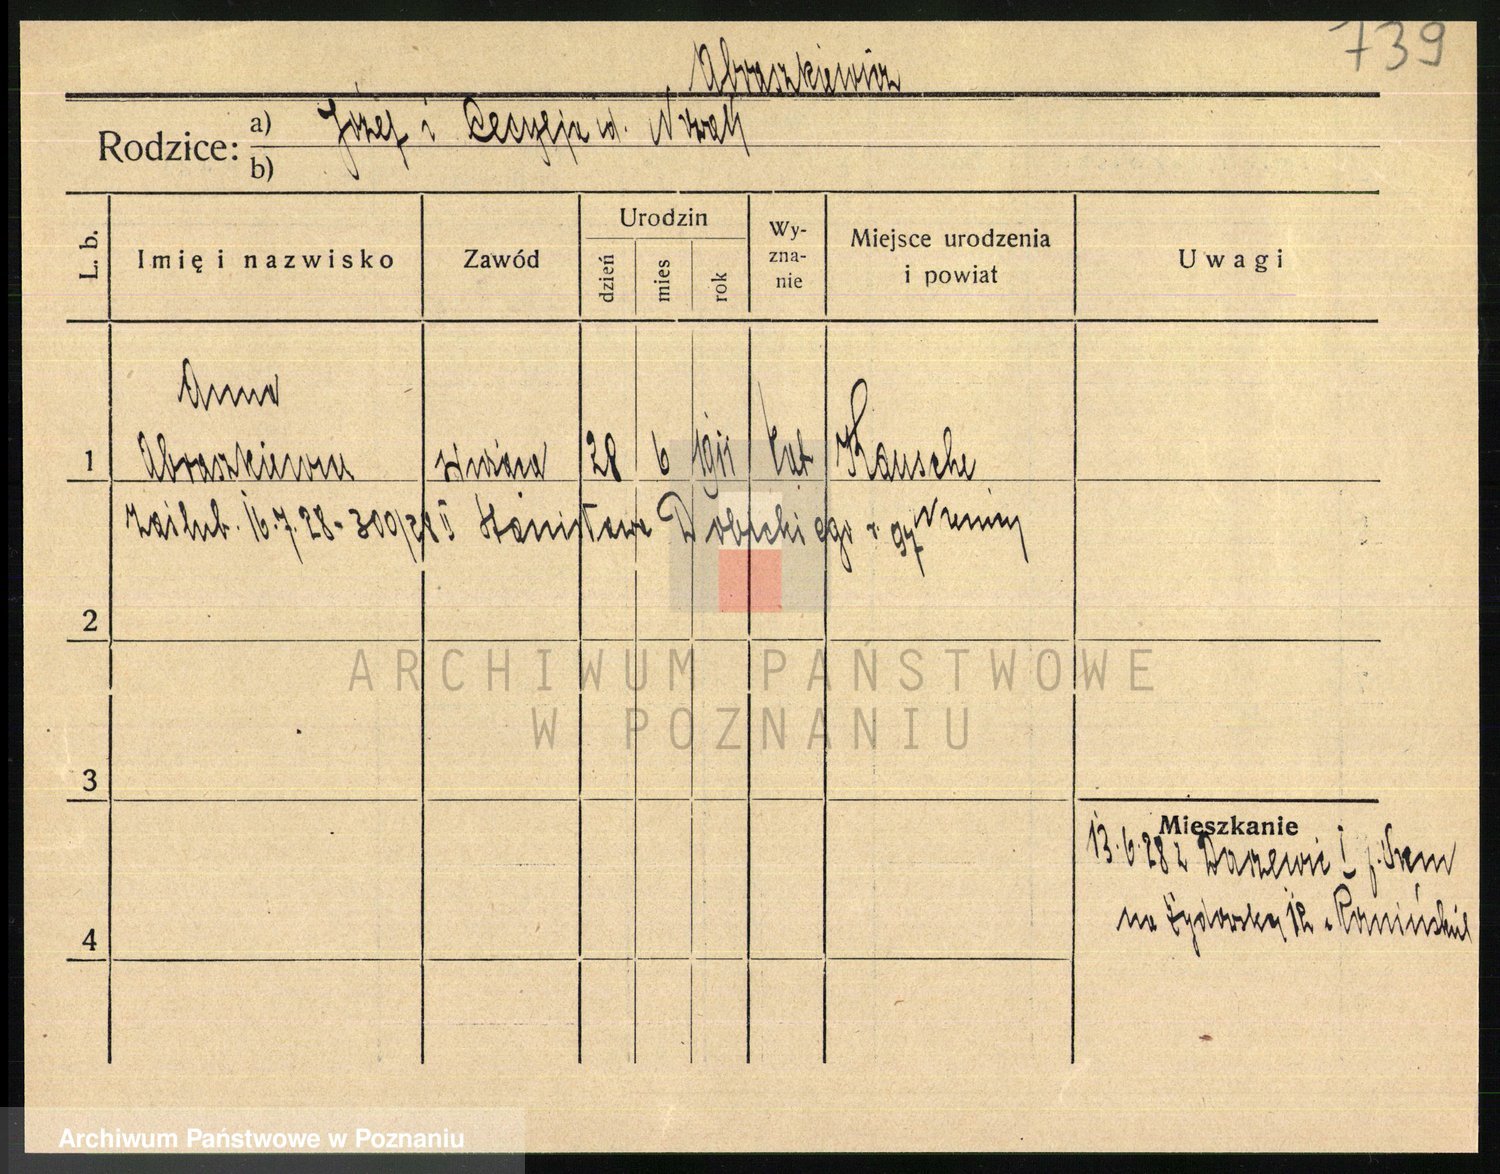 739
Abraszkiewicz
Rodzice: a) Józef i Cecylja ur. Nowak
b)
L. b.
Imię i nazwisko
Zawód
Urodzin
dzień
mies
rok
Wy-
zna-
nie
Miejsce urodzenia
i powiat
Uwagi
Anna
1 Abraszkiewicz 28 6 1911 kat
zaślub. 16.7.28 - 300/28 II Stanisława
2
3
4
Mieszkanie
13.6.28 z
na Żydowską
ARCHIWUM PAŃSTWOWE
W POZNANIU
Archiwum Państwowe w Poznaniu